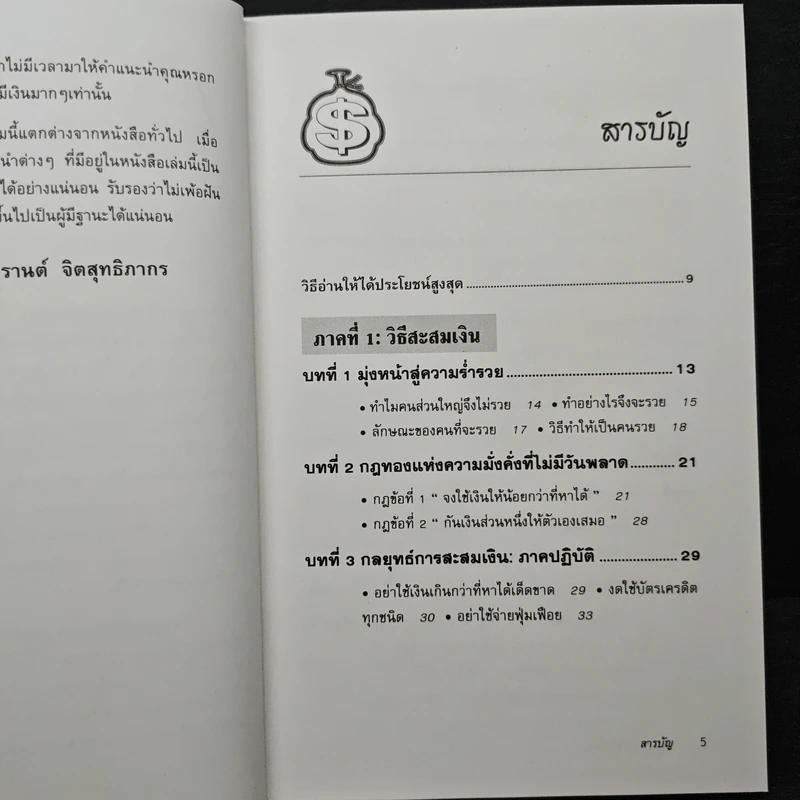 ไม่มีเวลามาให้คำแนะนำคุณหรอก
มีเงินมากๆเท่านั้น
มนี้แตกต่างจากหนังสือทั่วไป เมื่อ
นำต่างๆ ที่มีอยู่ในหนังสือเล่มนี้เป็น
ได้อย่างแน่นอน รับรองว่าไม่เพ้อฝัน
ขึ้นไปเป็นผู้มีฐานะได้แน่นอน
รานต์ จิตสุทธิภากร
$
สารบัญ
วิธีอ่านให้ได้ประโยชน์สูงสุด 9
ภาคที่ 1: วิธีสะสมเงิน
บทที่ 1 มุ่งหน้าสู่ความร่ำรวย 13
• ทำไมคนส่วนใหญ่จึงไม่รวย 14 • ทำอย่างไรจึงจะรวย 15
• ลักษณะของคนที่จะรวย 17 • วิธีทำให้เป็นคนรวย 18
บทที่ 2 กฎทองแห่งความมั่งคั่งที่ไม่มีวันพลาด 21
• กฎข้อที่ 1 “ จงใช้เงินให้น้อยกว่าที่หาได้ ” 21
• กฎข้อที่ 2 “ กันเงินส่วนหนึ่งให้ตัวเองเสมอ ” 28
บทที่ 3 กลยุทธ์การสะสมเงิน: ภาคปฏิบัติ 29
• อย่าใช้เงินเกินกว่าที่หาได้เด็ดขาด 29 • งดใช้บัตรเครดิต
ทุกชนิด 30 • อย่าใช้จ่ายฟุ่มเฟือย 33
สารบัญ 5